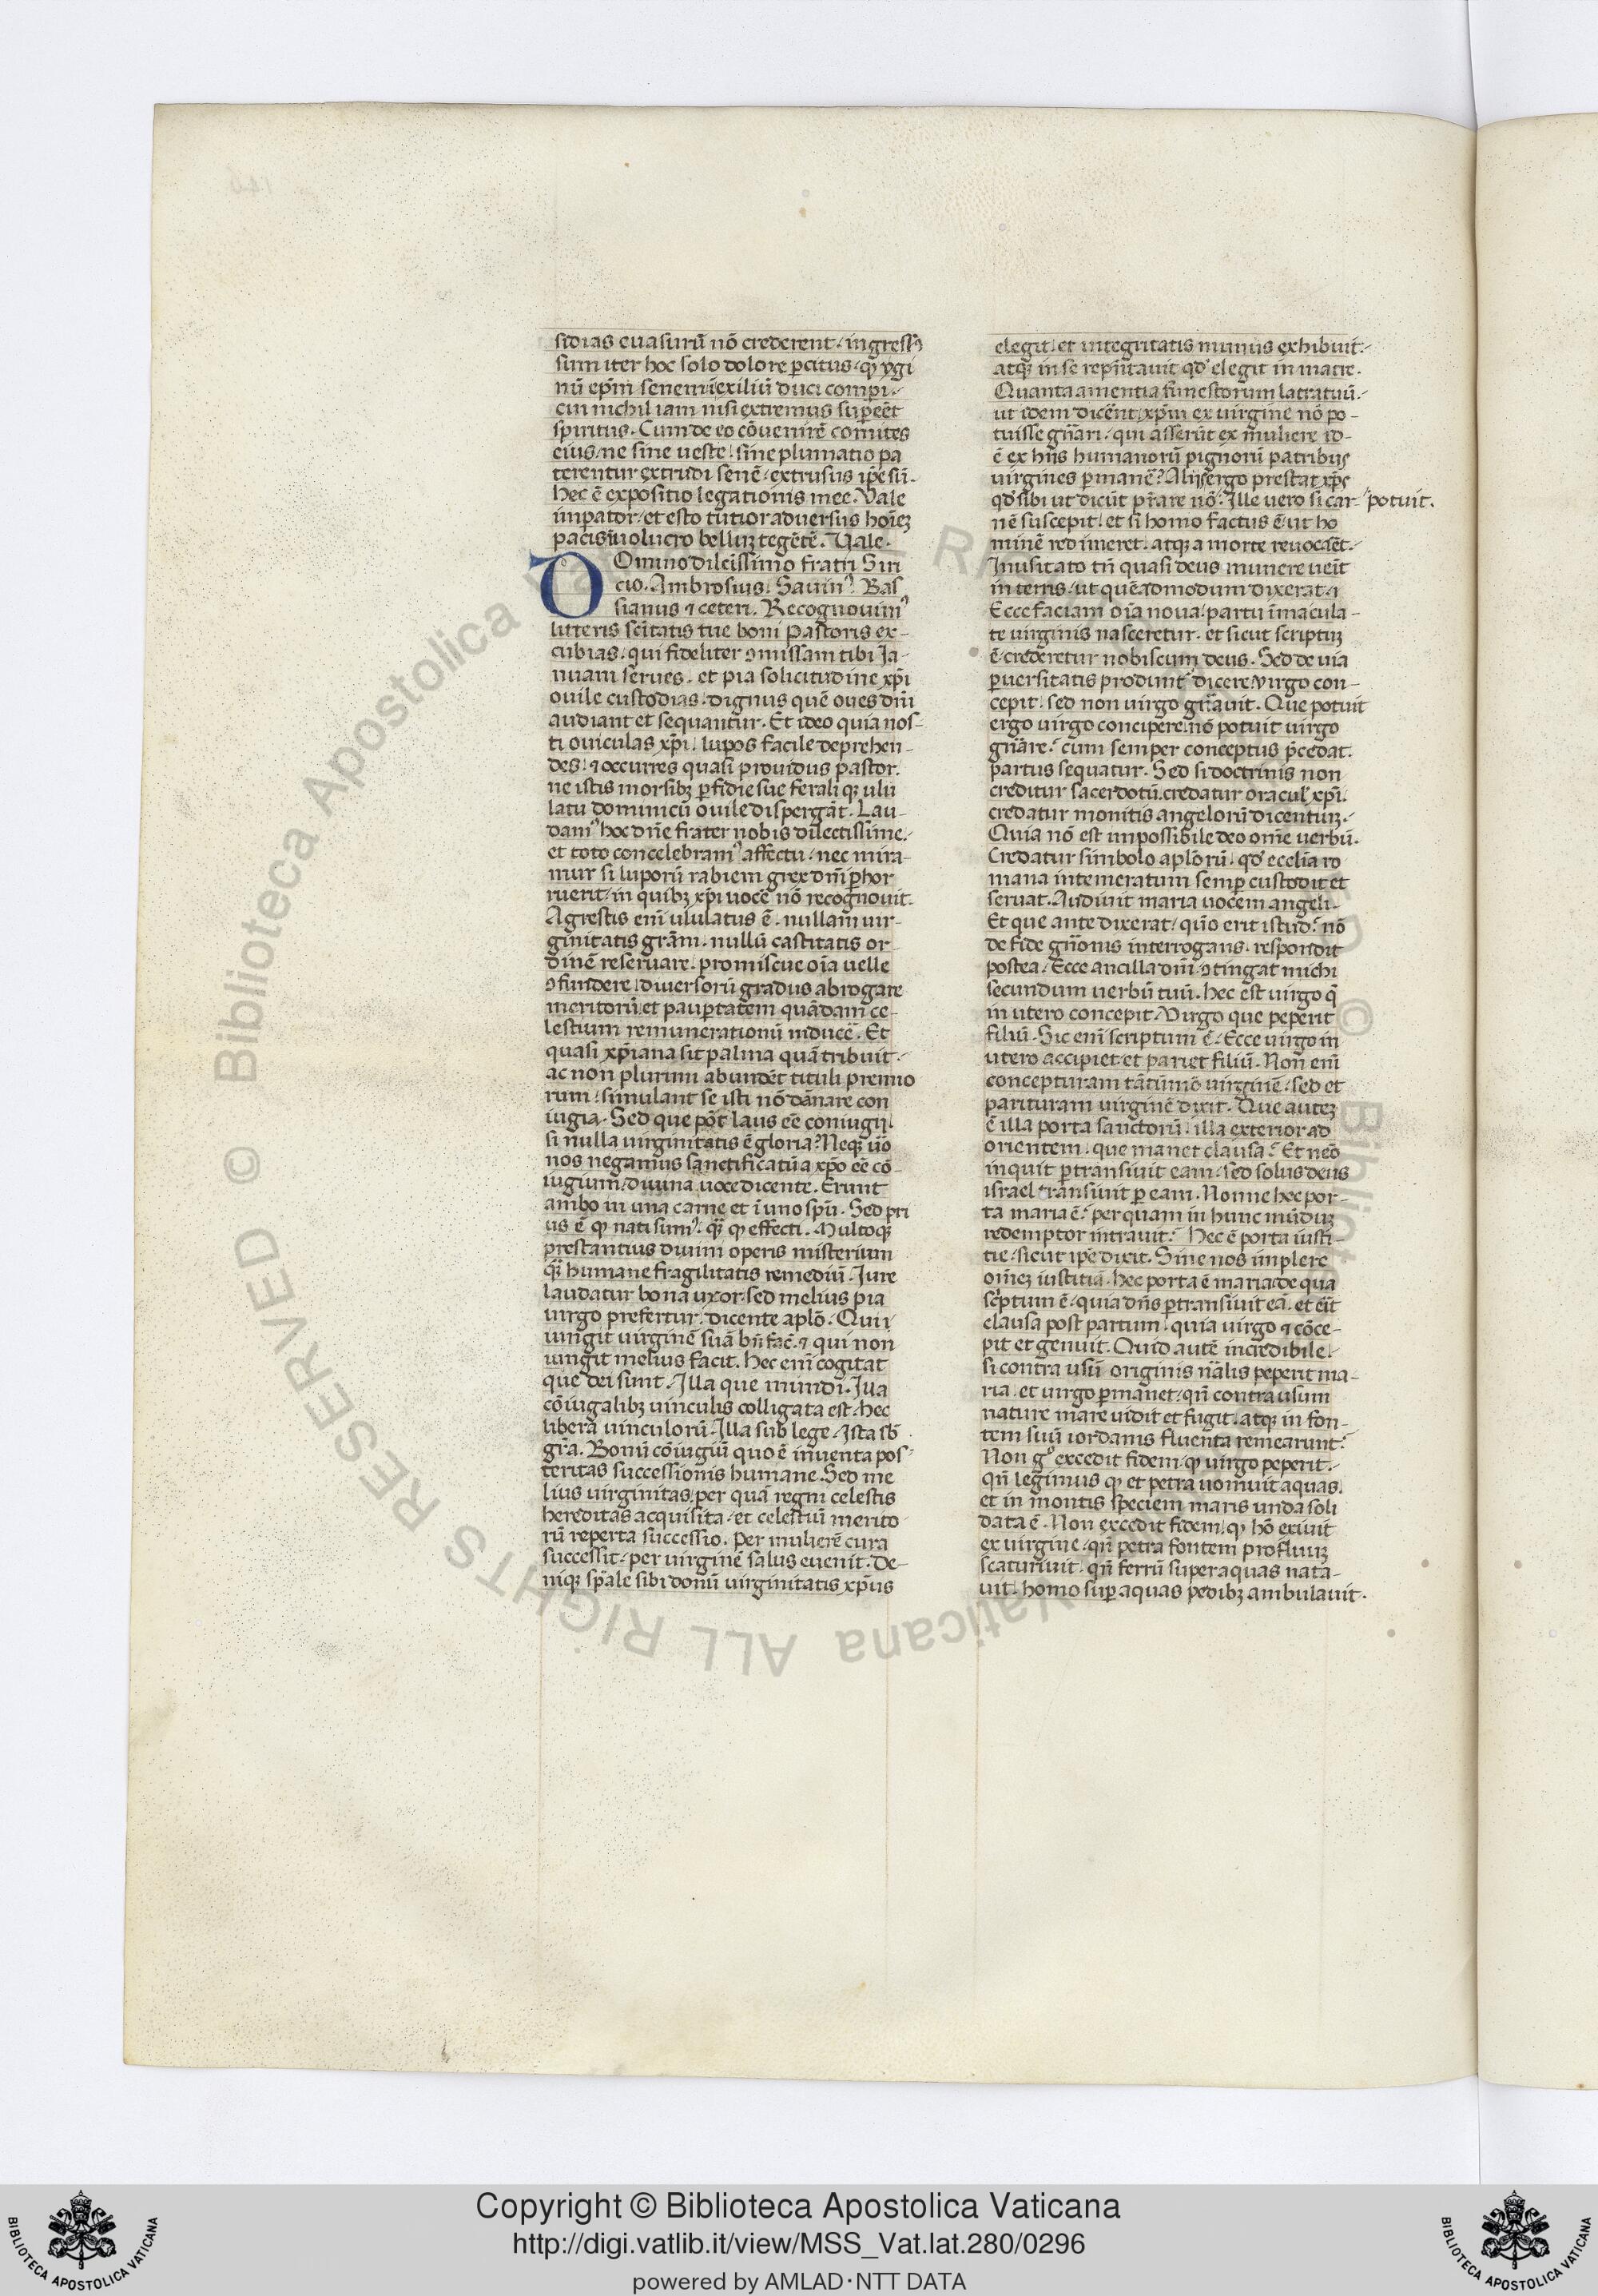 sidias euasurũ nõ crederent. ingressꝰ
sum iter hoc solo dolore ꝑcitus. ꝙ ygi
nũ ep̃m senem ĩ exiliũ duci comperi.
cui nichil iam nisi extremus suꝑeẽt
spiritus. Cum de eo cõuenirẽ comites
eius. ne sine ueste. sine plumatio pa
terentur extrudi senẽ. extrusus ip̃e sũ.
hec ẽ expositio legationis mee. Vale
impator. et esto tutior aduersus hoĩeꝫ
pacis ĩuolucro belluꝫ tegẽtẽ. Vale.
Domino dilcĩssimo fratri Siri
cio. Ambrosius. Sauinꝰ. Bas
sianus ⁊ ceteri. Recognouimꝰ
litteris scĩtatis tue boni Pastoris ex-
cubias. qui fideliter ꝯmissam tibi Ja-
nuam serues. et pia solicitudine xp̃i
ouile custodias. dignus quẽ oues dñi
audiant et sequantur. Et ideo quia nos-
ti ouiculas xp̃i. lupos facile deprehen-
des. ⁊ occurres quasi prouidus pastor.
ne istis morsibꝫ ꝑfidie sue feraliqꝫ ulu
latu dominicũ ouile dispergãt. Lau-
damꝰ hoc dñe frater nobis dilectissime.
et toto concelebramꝰ affectu. nec mira-
mur si luporũ rabiem grex dñi ꝑhor
ruerit. in quibꝫ xp̃i uocẽ nõ recognouit.
Agrestis eni ululatus ẽ. nullam uir-
ginitatis grãm. nullũ castitatis or-
dinẽ reseruare. promiscue oĩa uelle
ꝯfundere. diuersorũ gradus abrogare
meritorũ. et pauꝑtatem quãdam ce-
lestium remunerationũ inducẽ. Et
quasi xp̃iana sit palma quã tribuit.
ac non plurimi abundẽt tituli premio
rum. simulant se isti nõ dãnare con
iugia. Sed que põt laus eẽ coniugij.
si nulla uirginitatis ẽ gloria? Neqꝫ ũo
nos negamus sanctificatũ a xp̃o eẽ cõ-
iugium. diuina uoce dicente. Erunt
ambo in una carne et ĩ uno spũ. Sed pri
us ẽ ꝙ nati sumꝰ. q̃ꝫ ꝙ effecti. Multoqꝫ
prestantius diuini operis misterium
q̃ꝫ humane fragilitatis remediũ. Jure
laudatur bona uxor. sed melius pia
uirgo prefertur. dicente aplõ. Qui i
ungit uirginẽ suã bñ fac̃. ⁊ qui non
iungit melius facit. Hec eni cogitat
que dei sunt. Illa que mundi. Illa
cõiugalibꝫ uinculis colligata est. hec
libera uinculorũ. Illa sub lege. Ista sb̃
gr̃a. Bonũ cõiugiũ quo ẽ inuenta pos-
teritas successionis humane. Sed me
lius uirginitas. per quã regni celestis
hereditas acquisita. et celestiũ merito
rũ reperta successio. Per mulierẽ cura
successit. per uirginẽ salus euenit. De-
niqꝫ spãle sibi donũ uirginitatis xp̃us
elegit. et integritatis munus exhibuit.
atqꝫ in se rep̃ntauit qd̃ elegit in matre.
Quanta amentia funestorum latratuũ.
ut idem dicẽnt xp̃m ex uirgine nõ po-
tuisse gñari. qui asserũt ex muliere ed-
ẽ ex hijs humanorũ pignorũ patribus
uirgines ꝑmanẽ? Alijs ergo prestat xp̃s
qd̃ sibi ut dicũt p̃rare nõ. Ille uero si car- potuit.
nẽ suscepit. et si homo factus ẽ. ut ho
minẽ redimeret. atqꝫ a morte reuocãet.
Inusitato tñ quasi deus munere ueĩt
in terris. ut quẽadmodum dixerat.
Ecce faciam oĩa noua. partu ĩmacula-
te uirginis nasceretur. et sicut scriptuꝫ
ẽ. crederetur nobiscum deus. Sed de uia
ꝑuersitatis produnt dicere. Virgo con-
cepit. sed non uirgo gñauit. Que potuit
ergo uirgo concipere. nõ potuit uirgo
gñare? cum semper conceptus p̃cedat.
partus sequatur. Sed si doctrinis non
creditur sacerdotũ. credatur oracul' xp̃i.
credatur monitis angelorũ dicentiuꝫ.
Quia nõ est impossibile deo om̃e uerbũ.
Credatur simbolo aplõrũ. qd̃ ecclia ro
mana intemeratum semꝑ custodit et
seruat. Audiuit maria uocem angeli.
Et que ante dixerat. quõ erit istud? nõ
de fide gñonis interrogans. respondit
postea. Ecce ancilla dñi. ꝯtingat michi
secundum uerbũ tuũ. Hec est uirgo q̃
in utero concepit. Virgo que peperit
filiũ. Sic eni scriptum ẽ. Ecce uirgo in
utero accipiet et pariet filiũ. Non eni
concepturam tãtũmõ uirginẽ. sed et
parituram uirginẽ dixit. Que auteꝫ
ẽ illa porta sanctorũ. illa exterior ad
orientem. que manet clausa? Et neõ
inquit ꝑtransiuit eam. sed solus deus
israel transiuit ꝑ eam. Nonne hec por-
ta maria ẽ? per quam in hunc mũduꝫ
redemptor intrauit? Hec ẽ porta iusti-
tie. sicut ip̃e dixit. Sine nos implere
om̃eꝫ iustitiã. hec porta ẽ maria. de qua
sc̃ptum ẽ. quia dñs ꝑtransiuit eã. et erit
clausa post partum. quia uirgo ⁊ cõce-
pit et genuit. Quid autẽ incredibile.
si contra usũ originis nãlis peperit ma-
ria. et uirgo ꝑmanet. qñ contra usum
nature mare uidit et fugit. atqꝫ in fon-
tem suũ iordanis fluenta remearunt?
Non gͦ excedit fidem. ꝙ uirgo peperit.
qñ legimus ꝙ et petra uomuit aquas.
et in montis speciem maris unda soli
data ẽ. Non excedit fidem. ꝙ hõ exiuit
ex uirgine. qñ petra fontem profluuꝫ
scaturiuit. qñ ferrũ super aquas nata-
uit. homo suꝑ aquas pedibꝫ ambulauit.
Copyright © Biblioteca Apostolica Vaticana
http://digi.vatlib.it/view/MSS_Vat.lat.280/0296
powered by AMLAD·NTT DATA
BIBLIOTECA APOSTOLICA VATICANA
BIBLIOTECA APOSTOLICA VATICANA
© Biblioteca Apostolica Vaticana ALL RIGHTS RESERVED